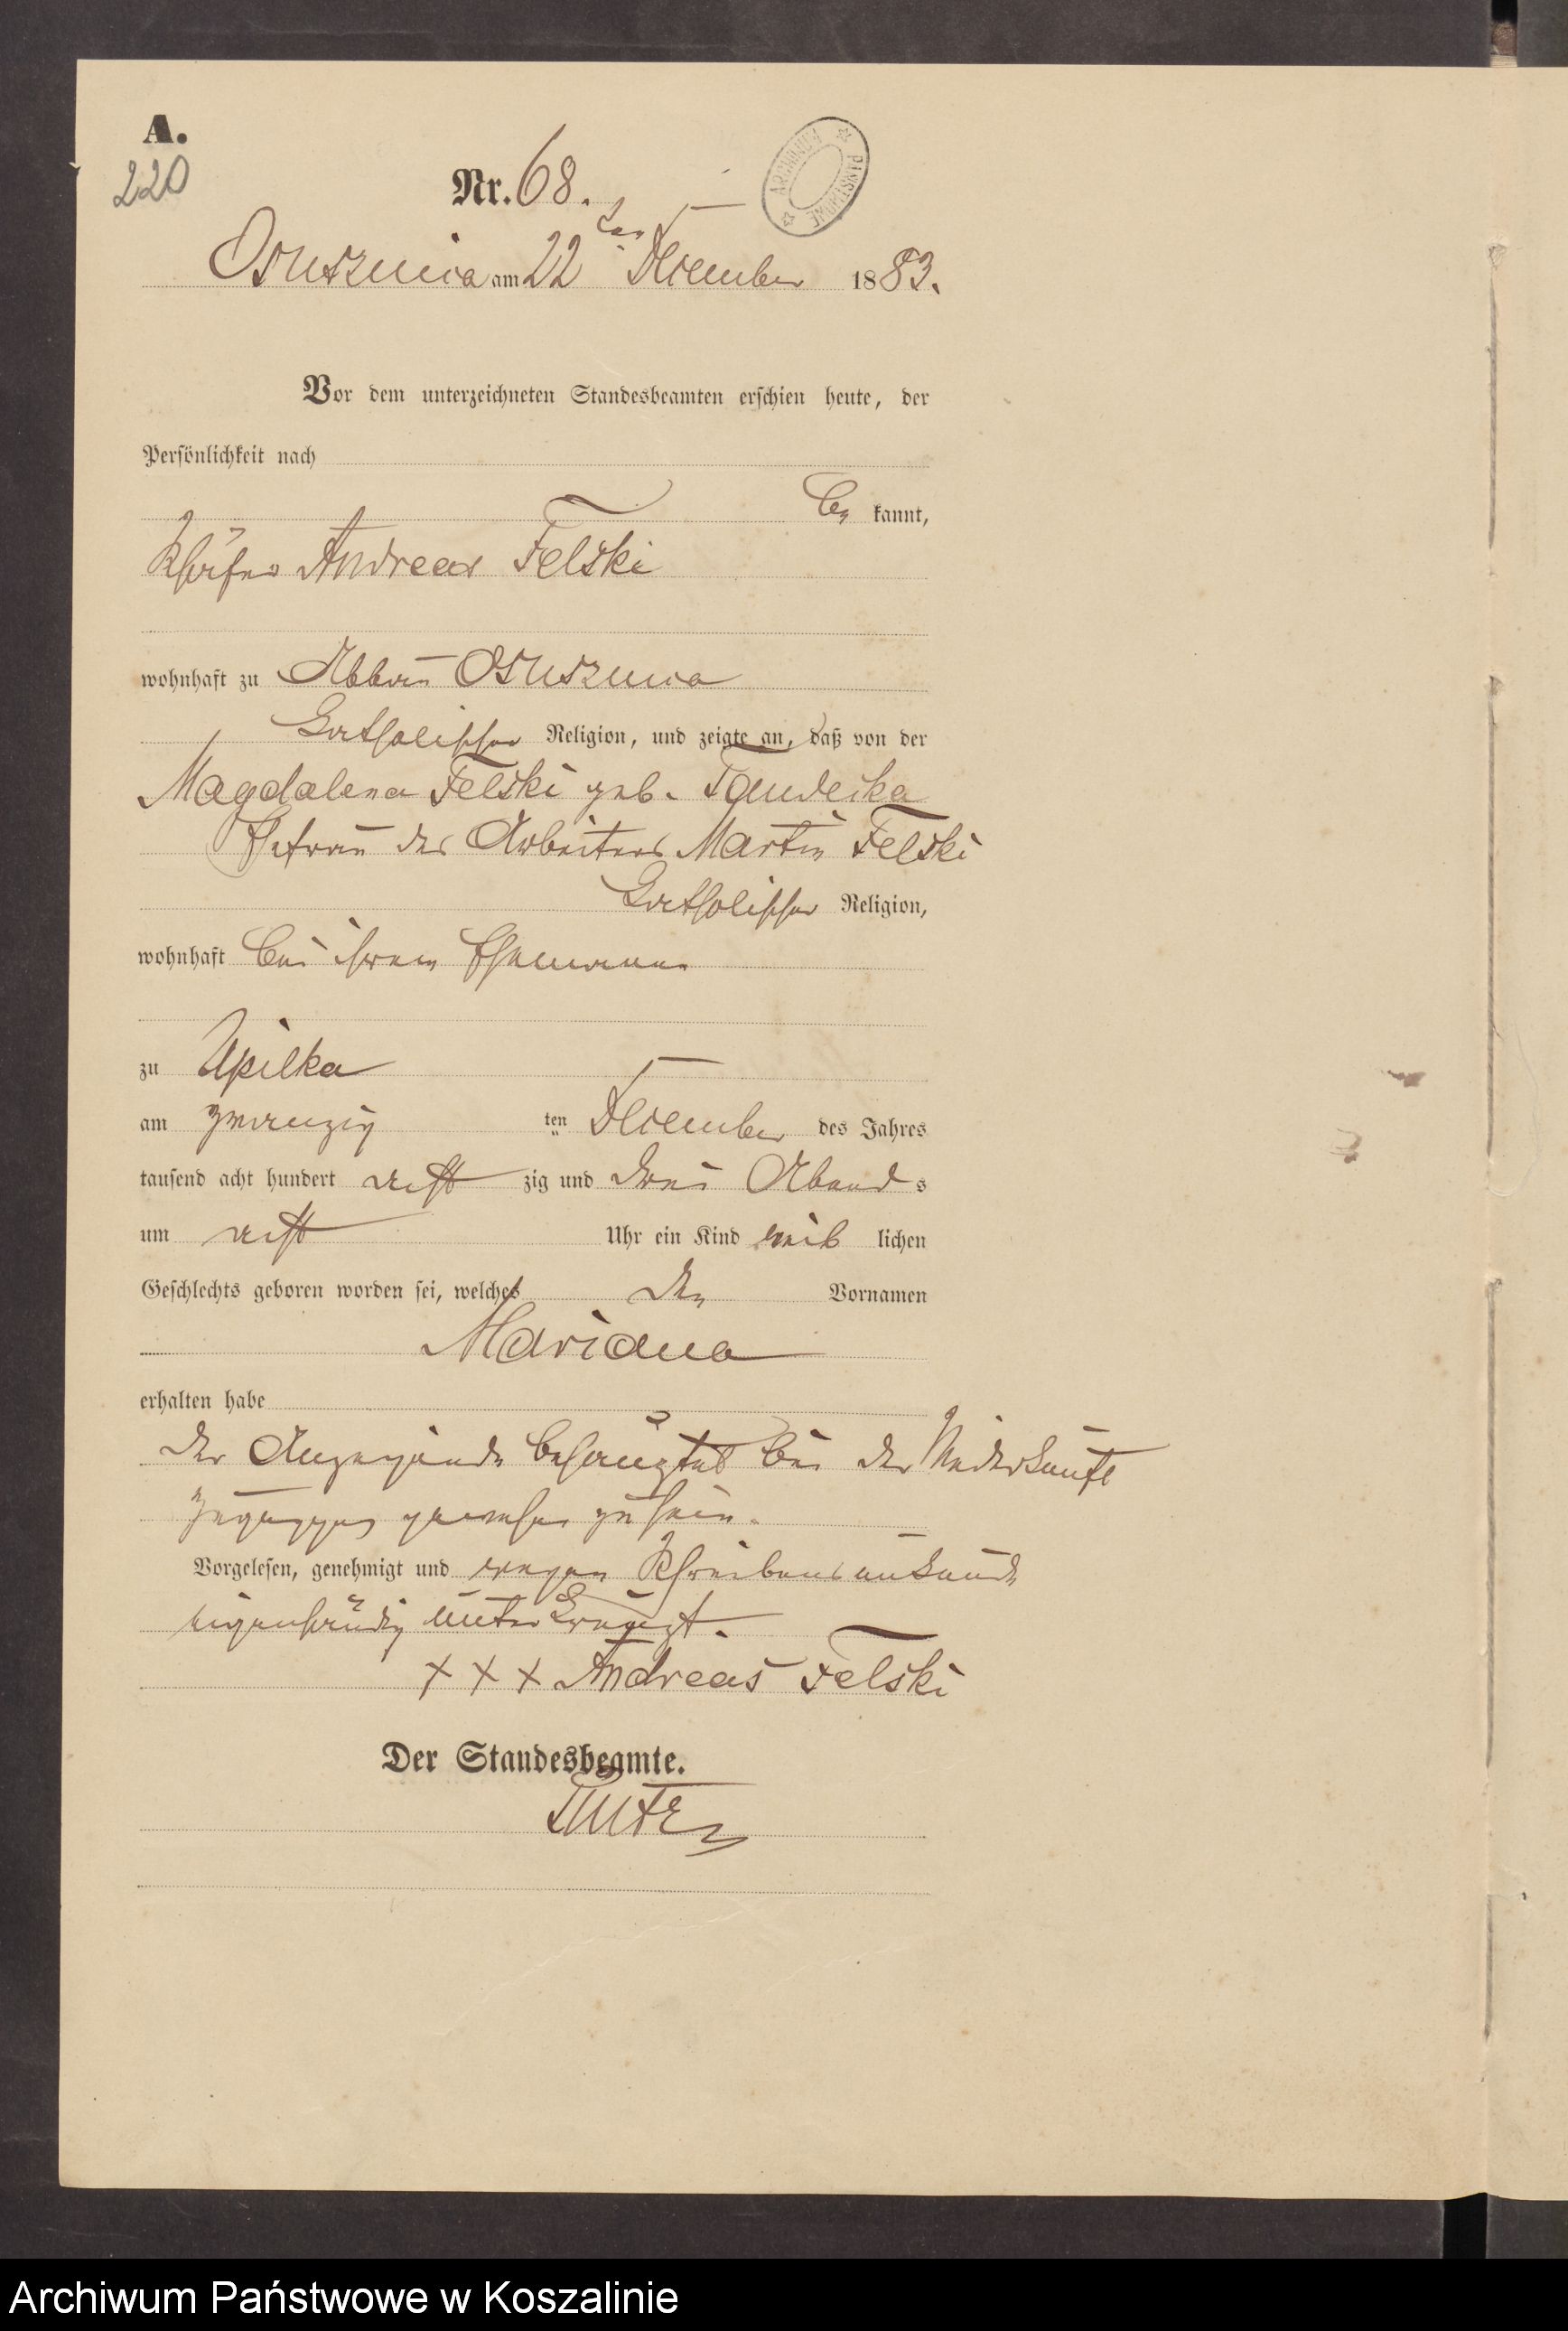 A.
220
Nr. 68.
ARCHIWUM PAŃSTWOWE
Osuszniza am 22 ten December 1883.
Vor dem unterzeichneten Standesbeamten erschien heute, der
Persönlichkeit nach
be kannt,
Schäfer Andreas Felski
wohnhaft zu Abbau Osuszniza
katholischer Religion, und zeigte an, daß von der
Magdalena Felski geb.
Ehefrau des Arbeiters Martin Felski
katholischer Religion,
wohnhaft bei ihrem Ehemanne
zu Upilka
am zwanzig ten December des Jahres
tausend acht hundert acht zig und drei Abends
um acht Uhr ein Kind weib lichen
Geschlechts geboren worden sei, welches den Vornamen
Mariana
erhalten habe
der Anzeigende bei der Niederkunft
zugegen gewesen zu sein.
Vorgelesen, genehmigt und wegen Schreibensunkunde
eigenhändig unterkreuzt.
+ + + Andreas Felski
Der Standesbeamte.
Archiwum Państwowe w Koszalinie